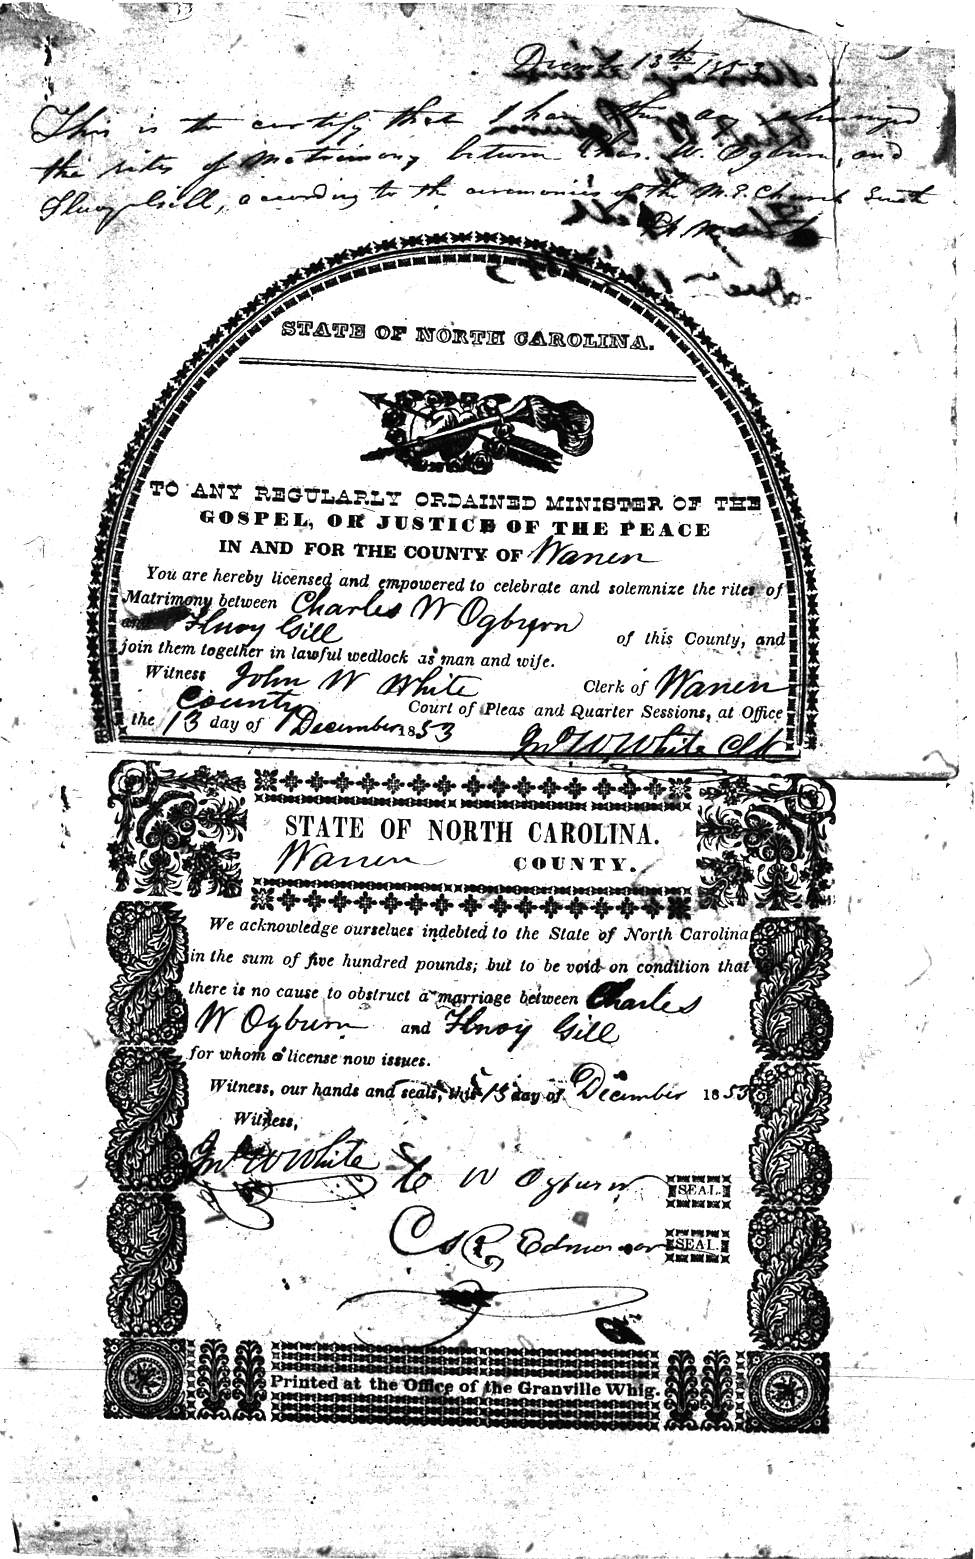 December 13th 1853
This is to certify that I have this day solemnized
the rites of Matrimony between Chas. W. Ogburn, and
Gill, according to the ceremonies of the M. E. Church South
STATE OF NORTH CAROLINA.
TO ANY REGULARLY ORDAINED MINISTER OF THE
GOSPEL, OR JUSTICE OF THE PEACE
IN AND FOR THE COUNTY OF Warren
You are hereby licensed and empowered to celebrate and solemnize the rites of
Matrimony between Charles W Ogburn
and Gill of this County, and
join them together in lawful wedlock as man and wife.
Witness John W White Clerk of Warren
County Court of Pleas and Quarter Sessions, at Office
the 13 day of December 1853
Jno W White Clk
STATE OF NORTH CAROLINA.
Warren COUNTY.
We acknowledge ourselves indebted to the State of North Carolina
in the sum of five hundred pounds; but to be void on condition that
there is no cause to obstruct a marriage between Charles
W Ogburn and Gill
for whom a license now issues.
Witness, our hands and seals, this 13 day of December 1853
Witness,
Jno W White C W Ogburn SEAL.
SEAL.
Printed at the Office of the Granville Whig.